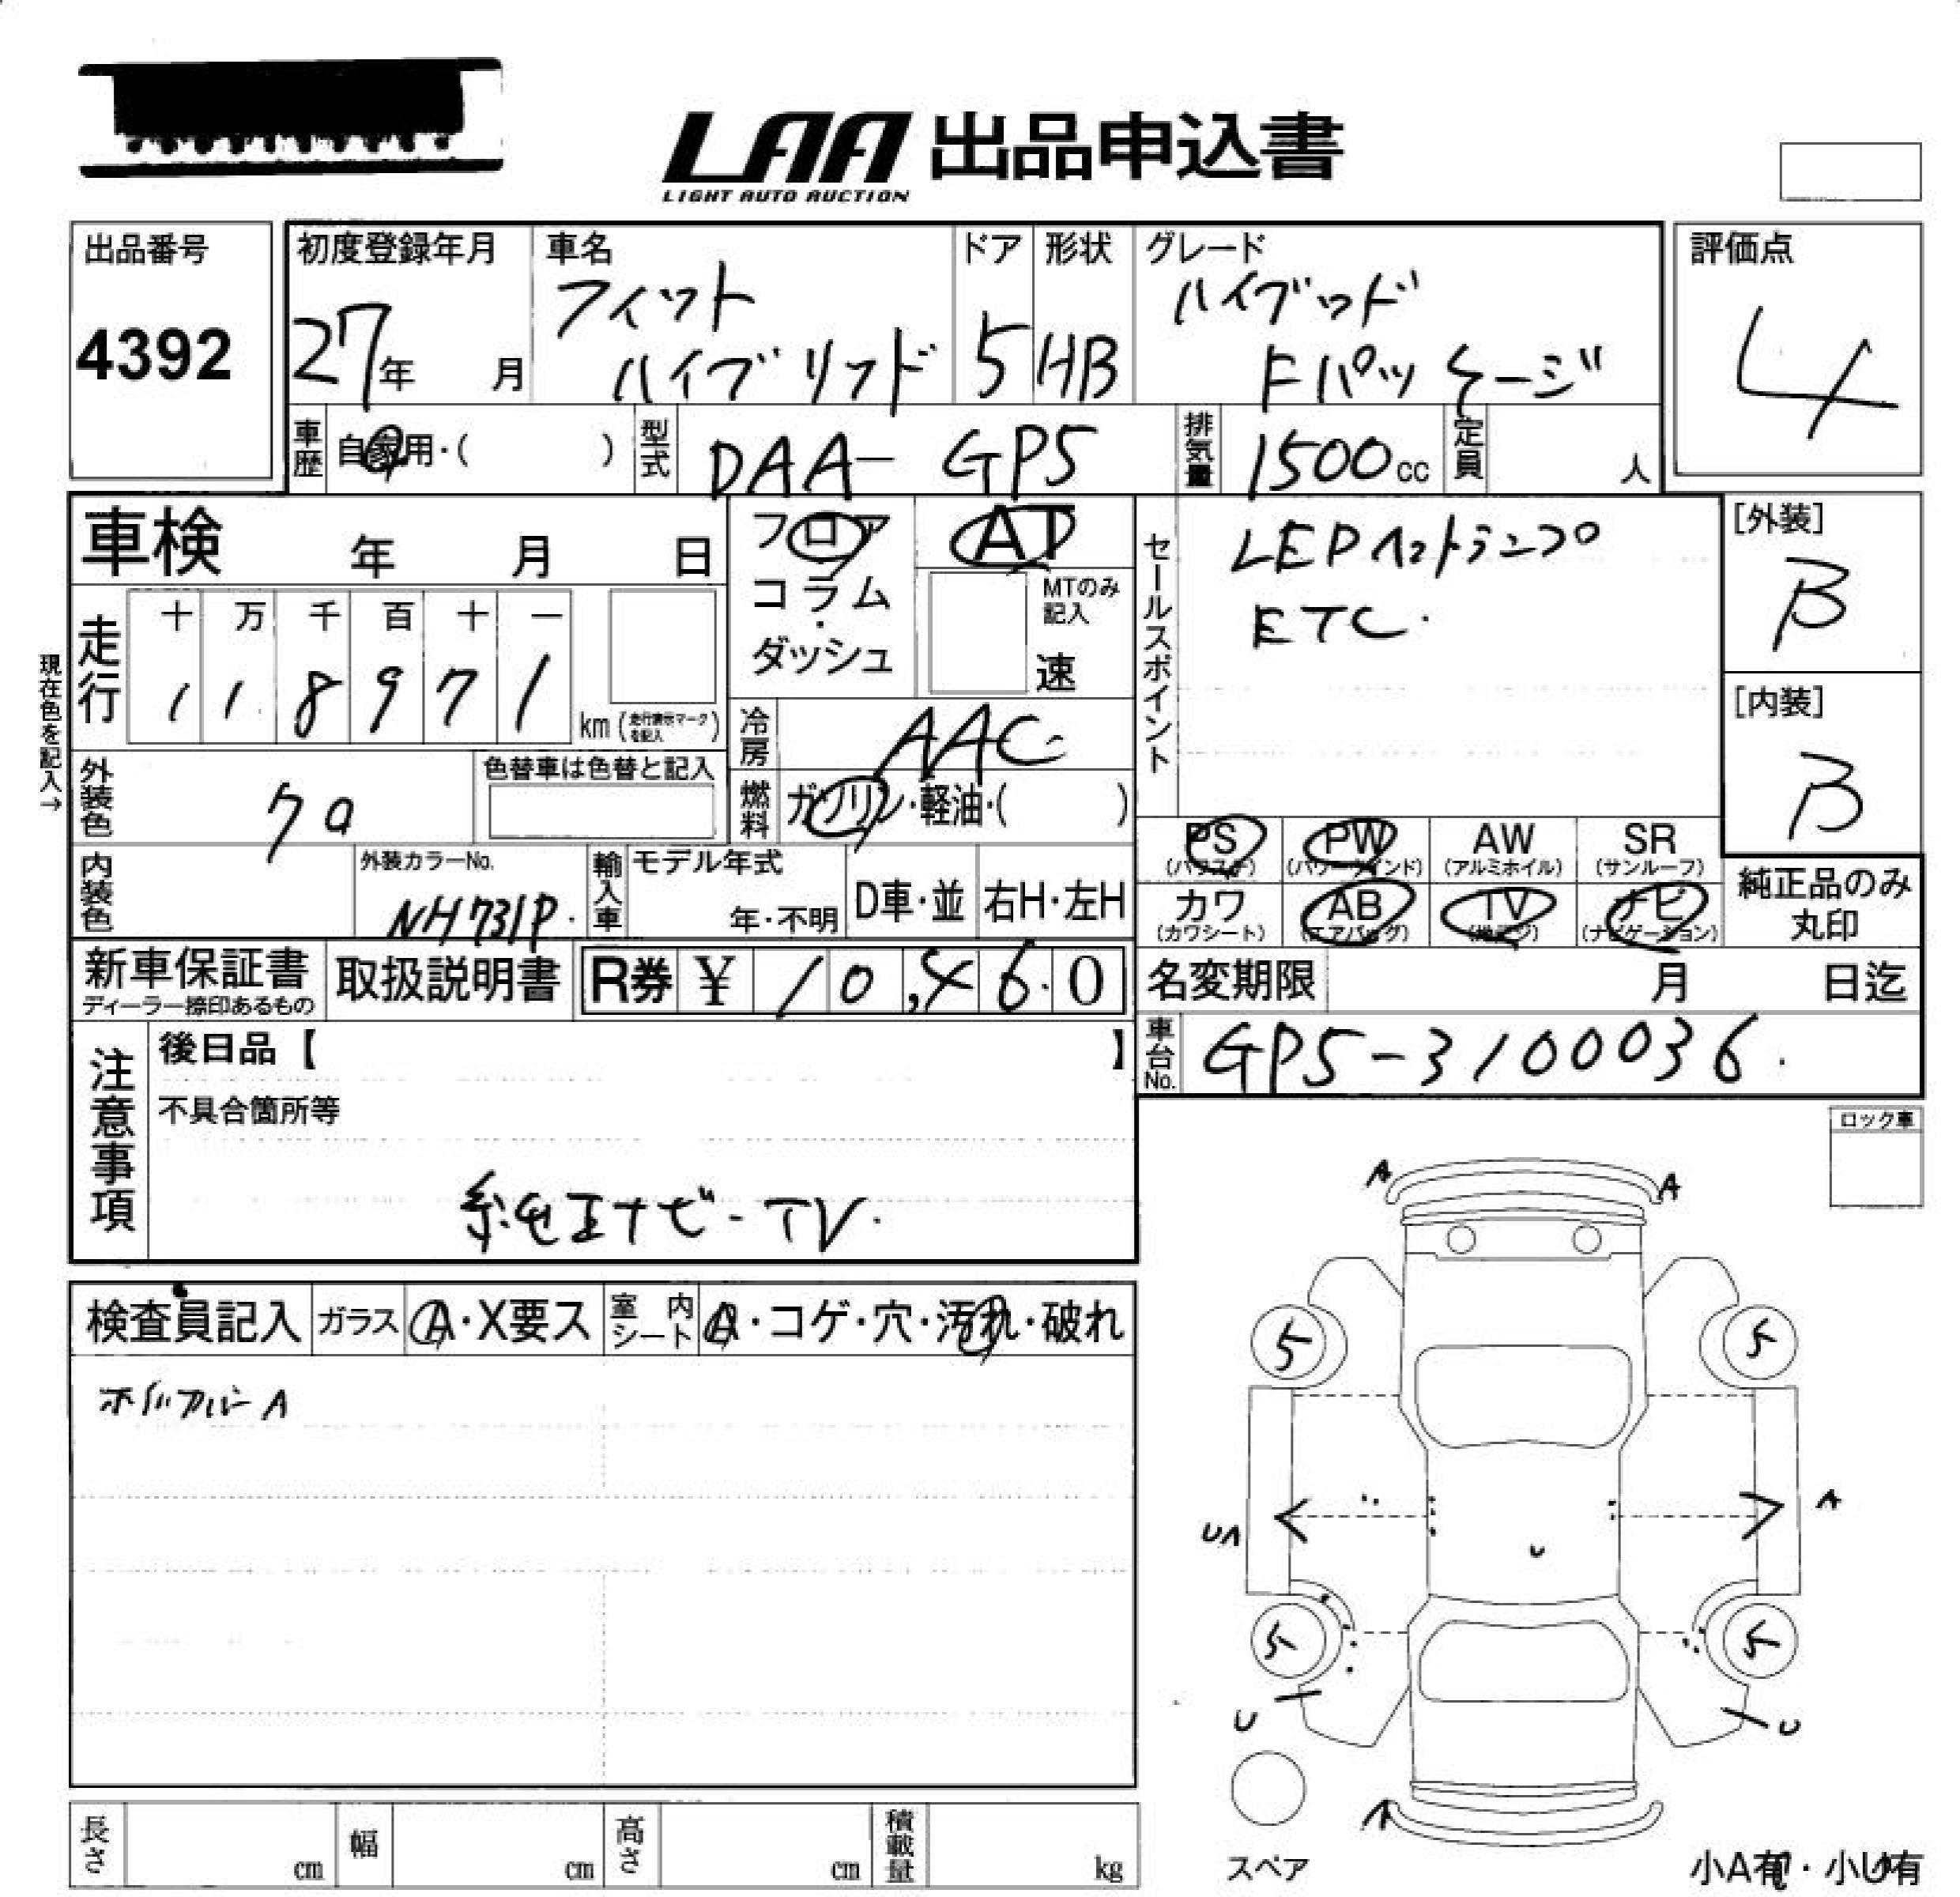 LAA 出品申込書
LIGHT AUTO AUCTION
出品番号
4392
初度登録年月
27年 月
車名
フィット
ハイブリッド
ドア
5
形状
HB
グレード
ハイブッド
Fパッケージ
評価点
4
車歴
自家用・( )
型式
DAA- GP5
排気量
1500cc
定員
人
車検 年 月 日
フロア
コラム
・
ダッシュ
AT
MTのみ記入
速
セールスポイント
LEDヘットランプ
ETC.
[外装]
B
[内装]
B
現在色を記入→
走行
十 万 千 百 十 一
1 1 8 9 7 1
km (走行表示マークを記入)
冷房
AAC
燃料
ガソリン・軽油・( )
外装色
クロ
色替車は色替と記入
内装色
外装カラーNo.
NH731P.
輸入車
モデル年式
年・不明
D車・並
右H・左H
PS (パワステ)
PW (パワーウインド)
AW (アルミホイル)
SR (サンルーフ)
カワ (カワシート)
AB (エアバッグ)
TV (地デジ)
ナビ (ナビゲーション)
純正品のみ
丸印
新車保証書
ディーラー捺印あるもの
取扱説明書
R券 ¥ 10,460
名変期限 月 日迄
車台No.
GP5-3100036.
注意事項
後日品【 】
不具合箇所等
純正ナビ-TV.
ロック車
検査員記入
ガラス A・X要ス
室内シート A・コゲ・穴・汚れ・破れ
A
A A
5 5
UA A
U
5 5
U U
A
スペア
長さ cm
幅 cm
高さ cm
積載量 kg
小A有・小U有